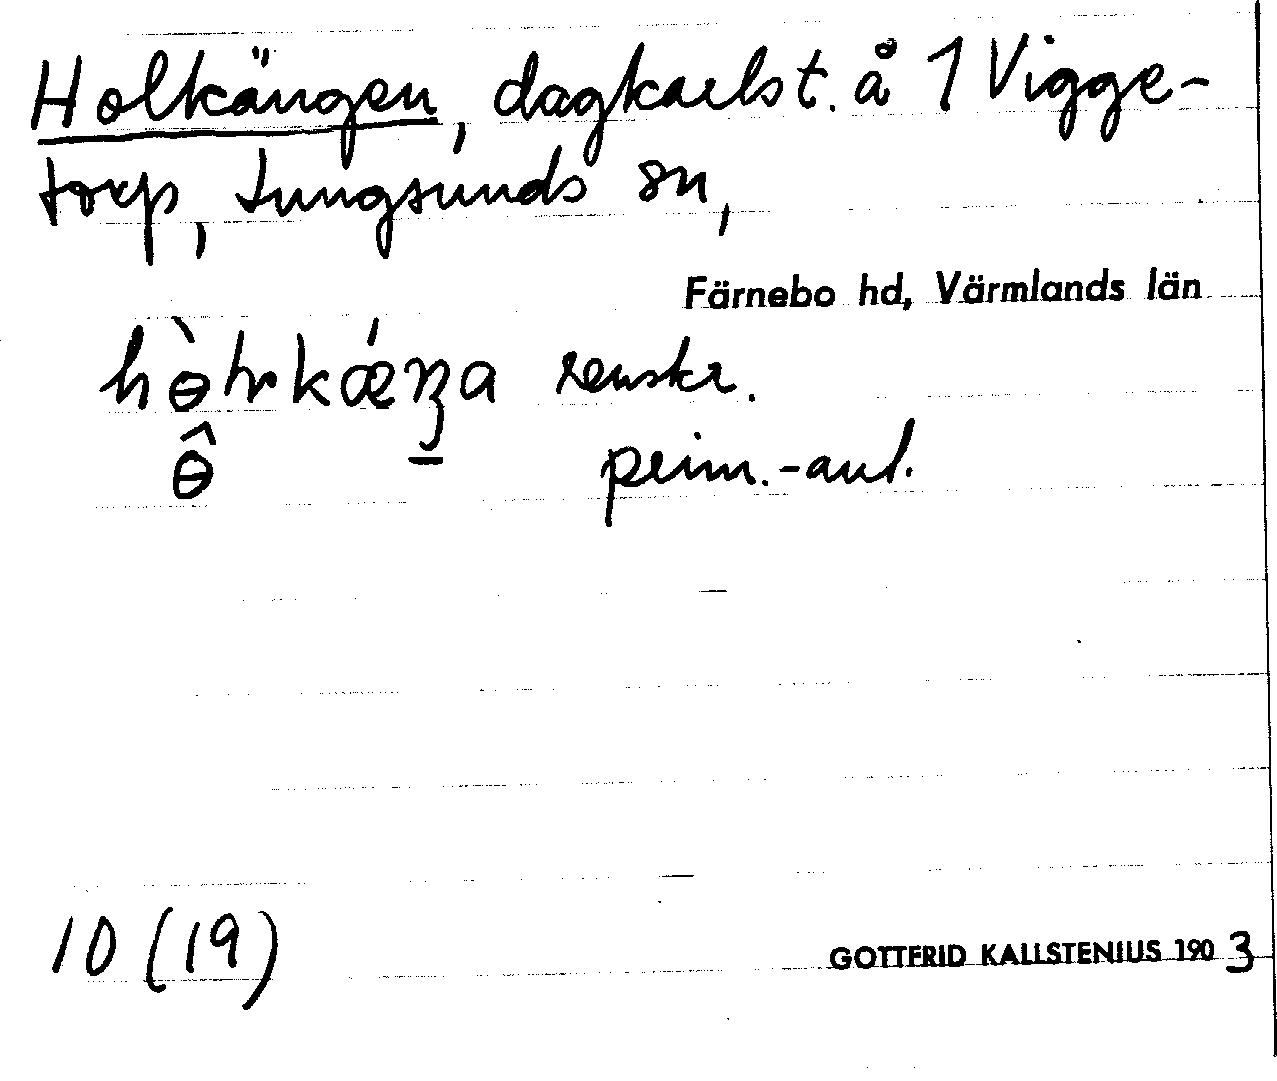 Holkängen, dagkarlst. å 1 Vigge-
torp, Lungsunds sn,
Färnebo hd, Värmlands län
renskr.
prim.-ant.
10 (19)
GOTTFRID KALLSTENIUS 1903